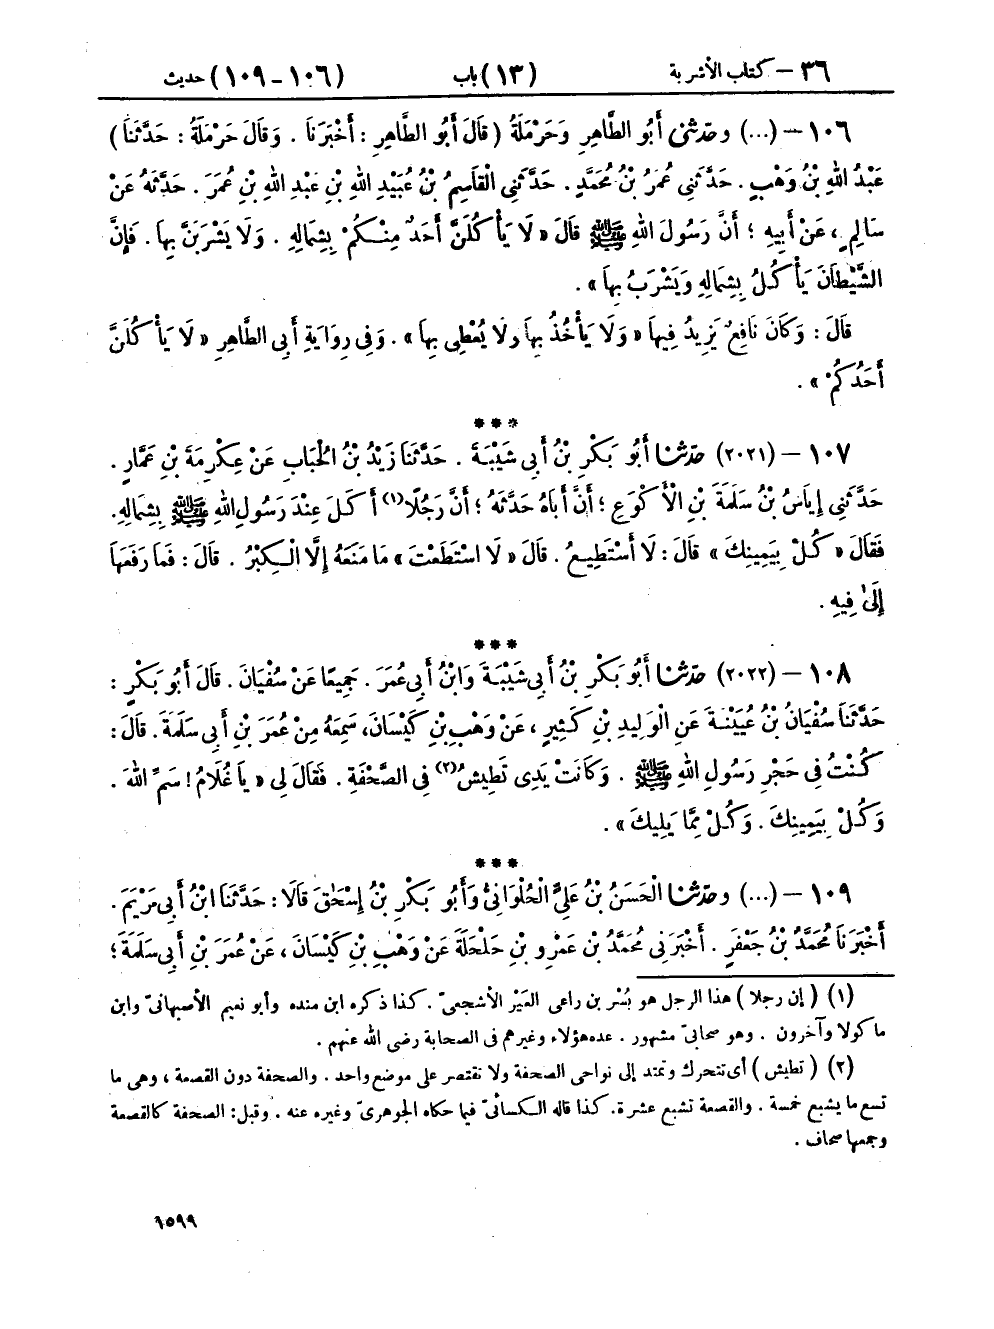 ٣٦ – كتاب الأشربة (١٣) باب (١٠٦ – ١٠٩) حديث
١٠٦ – (...) وحَدَّثَنِي أَبُو الطَّاهِرِ وَحَرْمَلَةُ (قَالَ أَبُو الطَّاهِرِ : أَخْبَرَنَا . وَقَالَ حَرْمَلَةُ : حَدَّثَنَا)
عَبْدُ اللهِ بْنُ وَهْبٍ . حَدَّثَنِي عُمَرُ بْنُ مُحَمَّدٍ . حَدَّثَنِي الْقَاسِمُ بْنُ عُبَيْدِ اللهِ بْنِ عَبْدِ اللهِ بْنِ عُمَرَ . حَدَّثَهُ عَنْ
سَالِمٍ ، عَنْ أَبِيهِ ؛ أَنَّ رَسُولَ اللهِ ﷺ قَالَ « لَا يَأْكُلَنَّ أَحَدٌ مِنْكُمْ بِشِمَالِهِ . وَلَا يَشْرَبَنَّ بِهَا . فَإِنَّ
الشَّيْطَانَ يَأْكُلُ بِشِمَالِهِ وَيَشْرَبُ بِهَا » .
قَالَ : وَكَانَ نَافِعٌ يَزِيدُ فِيهَا « وَلَا يَأْخُذُ بِهَا وَلَا يُعْطِي بِهَا » . وَفِي رِوَايَةِ أَبِي الطَّاهِرِ « لَا يَأْكُلَنَّ
أَحَدُكُمْ » .
***
١٠٧ – (٢٠٢١) حَدَّثَنَا أَبُو بَكْرِ بْنُ أَبِي شَيْبَةَ . حَدَّثَنَا زَيْدُ بْنُ الْحُبَابِ عَنْ عِكْرِمَةَ بْنِ عَمَّارٍ .
حَدَّثَنِي إِيَاسُ بْنُ سَلَمَةَ بْنِ الْأَكْوَعِ ؛ أَنَّ أَبَاهُ حَدَّثَهُ ؛ أَنَّ رَجُلًا(١) أَكَلَ عِنْدَ رَسُولِ اللهِ ﷺ بِشِمَالِهِ.
فَقَالَ « كُلْ بِيَمِينِكَ » قَالَ : لَا أَسْتَطِيعُ . قَالَ « لَا اسْتَطَعْتَ » مَا مَنَعَهُ إِلَّا الْكِبْرُ . قَالَ : فَمَا رَفَعَهَا
إِلَىٰ فِيهِ .
***
١٠٨ – (٢٠٢٢) حَدَّثَنَا أَبُو بَكْرِ بْنُ أَبِي شَيْبَةَ وَابْنُ أَبِي عُمَرَ . جَمِيعًا عَنْ سُفْيَانَ . قَالَ أَبُو بَكْرٍ :
حَدَّثَنَا سُفْيَانُ بْنُ عُيَيْنَةَ عَنِ الْوَلِيدِ بْنِ كَثِيرٍ ، عَنْ وَهْبِ بْنِ كَيْسَانَ، سَمِعَهُ مِنْ عُمَرَ بْنِ أَبِي سَلَمَةَ . قَالَ :
كُنْتُ فِي حَجْرِ رَسُولِ اللهِ ﷺ . وَكَانَتْ يَدِي تَطِيشُ(٢) فِي الصَّحْفَةِ . فَقَالَ لِي « يَا غُلَامُ ! سَمِّ اللهَ .
وَكُلْ بِيَمِينِكَ . وَكُلْ مِمَّا يَلِيكَ » .
***
١٠٩ – (...) وحَدَّثَنَا الْحَسَنُ بْنُ عَلِيٍّ الْحُلْوَانِيُّ وَأَبُو بَكْرِ بْنُ إِسْحَاقَ قَالَا : حَدَّثَنَا ابْنُ أَبِي مَرْيَمَ .
أَخْبَرَنَا مُحَمَّدُ بْنُ جَعْفَرٍ . أَخْبَرَنِي مُحَمَّدُ بْنُ عَمْرِو بْنِ حَلْحَلَةَ عَنْ وَهْبِ بْنِ كَيْسَانَ ، عَنْ عُمَرَ بْنِ أَبِي سَلَمَةَ ؛
(١) ( إن رجلا ) هذا الرجل هو بُسْر بن راعى العَيْر الأشجعىّ . كذا ذكره ابن منده وأبو نعيم الأصبهانىّ وابن
ماكولا وآخرون . وهو صحابىّ مشهور . عده هؤلاء وغيرهم فى الصحابة رضى الله عنهم .
(٢) ( تطيش ) أى تتحرك وتمتد إلى نواحى الصحفة ولا تقتصر على موضع واحد . والصحفة دون القصعة ، وهى ما
تسع ما يشبع خمسة . والقصعة تشبع عشرة. كذا قاله الكسائىّ فيما حكاه الجوهرىّ وغيره عنه . وقيل: الصحفة كالقصعة
وجمعها صحاف .
١٥٩٩